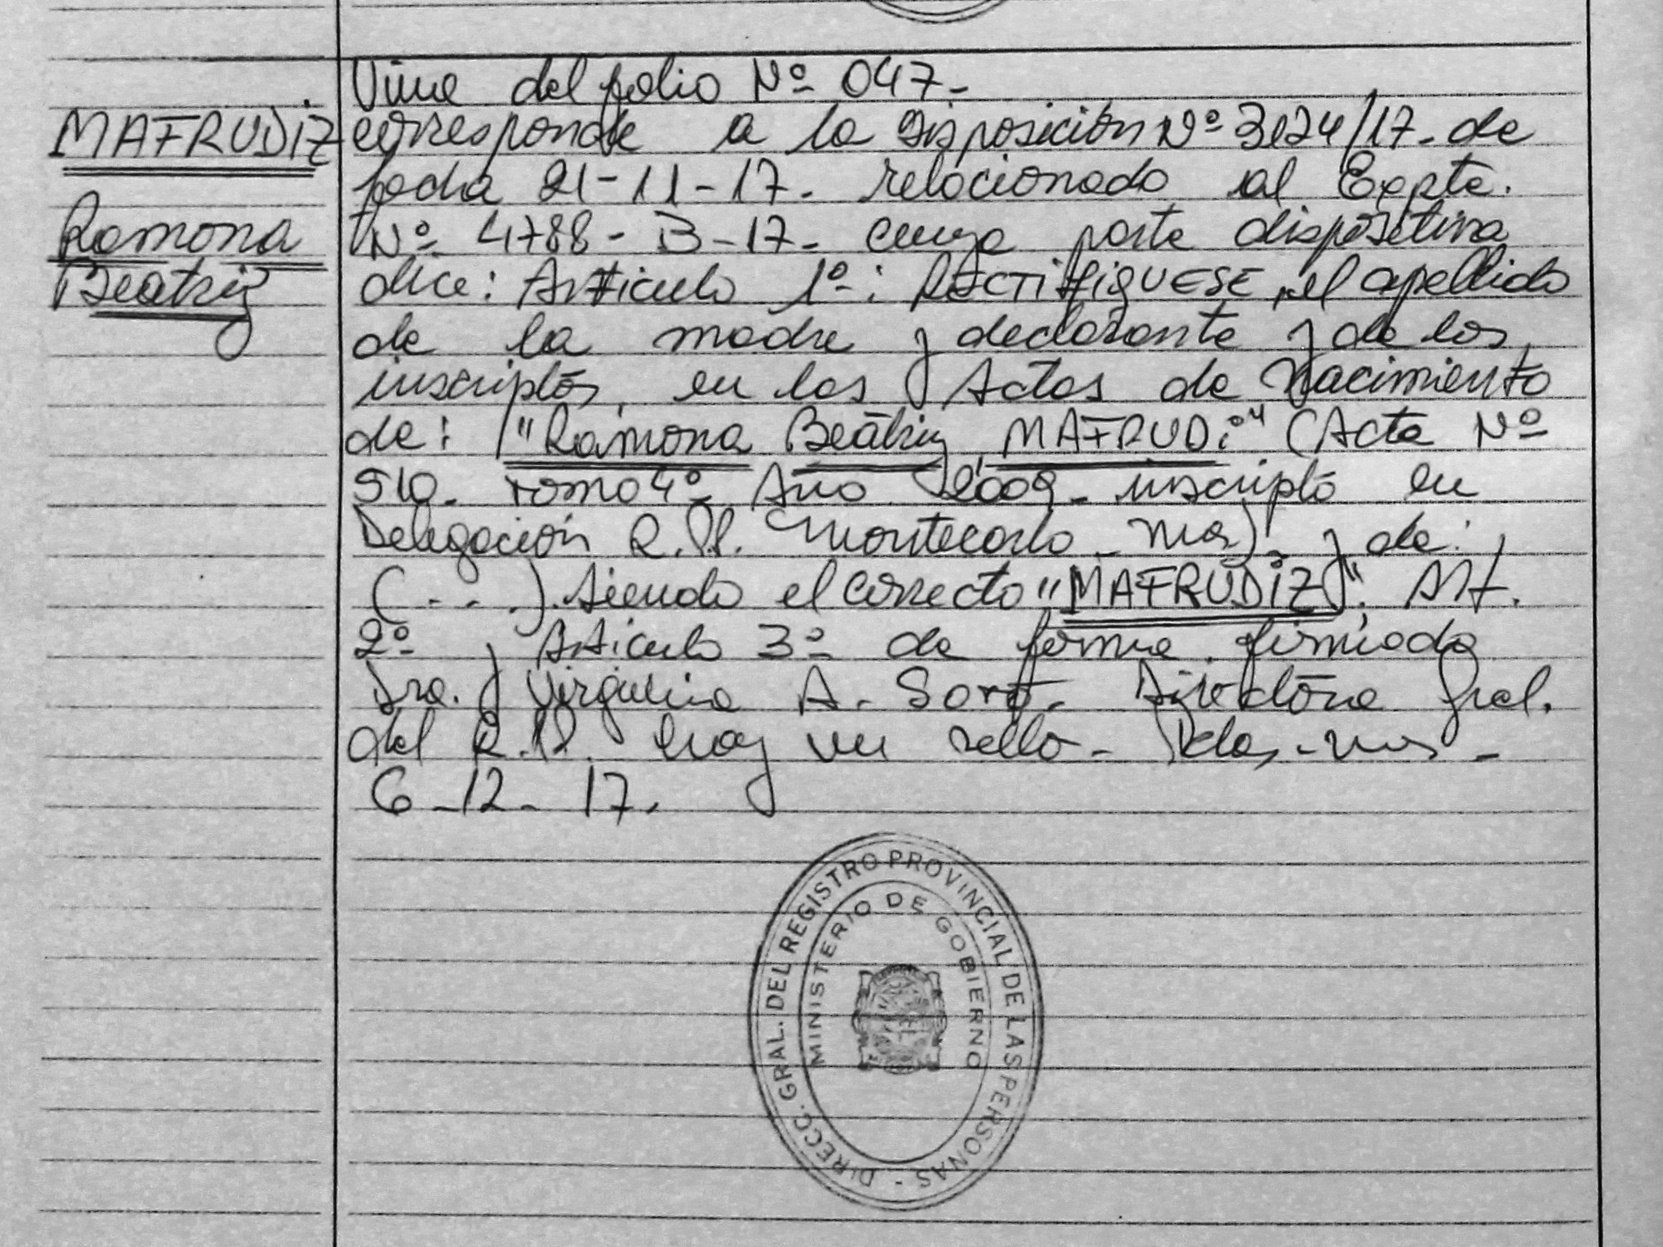 Viene del folio Nº 047-
MAFRUDIZ corresponde a la Disposición Nº 3124/17- de
fecha 21-11-17- relacionado al Expte.
Ramona Nº 4788-B-17- cuya parte dispositiva
Beatriz dice: Artículo 1º: RECTIFIQUESE, el apellido
de la madre y declarante y de los
inscriptos, en las Actas de Nacimiento
de: "Ramona Beatriz MAFRUDI" (Acta Nº
510- Tomo 4º Año 2009- inscripto en
Delegación R.P. Montecarlo - Mnes) y de:
(...). Siendo el correcto "MAFRUDIZ". Art.
2º y Artículo 3º de forma firmado
Dra. A. Soto- Directora Gral.
del R.P. hay un sello- Pdas-Mnes-
6-12-17.
DIRECC. GRAL. DEL REGISTRO PROVINCIAL DE LAS PERSONAS -
MINISTERIO DE GOBIERNO